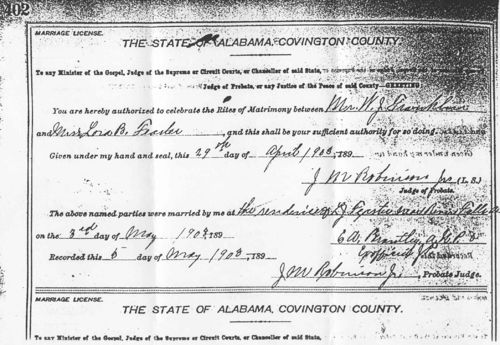 402
MARRIAGE LICENSE.
THE STATE OF ALABAMA, COVINGTON COUNTY.
To any Minister of the Gospel, Judge of the Supreme or Circuit Courts, or Chancellor of said State,
Judge of Probate, or any Justice of the Peace of said County—GREETING
You are hereby authorized to celebrate the Rites of Matrimony between Mr. W. J.
and Miss B. , and this shall be your sufficient authority for so doing.
Given under my hand and seal, this 29 day of April 1903, 189
J M Robinson Jr (L. S.)
Judge of Probate.
The above named parties were married by me at the residence of J
on the 3rd day of May 1903 189 E A. Brantley
Recorded this 5 day of May 1903, 189
J M Robinson Jr, Probate Judge.
MARRIAGE LICENSE.
THE STATE OF ALABAMA, COVINGTON COUNTY.
To any Minister of the Gospel, Judge of the Supreme or Circuit Courts, or Chancellor of said State,